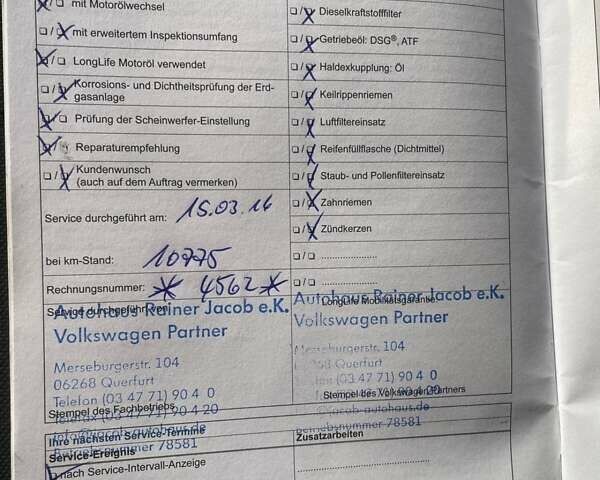 mit Motorölwechsel
mit erweitertem Inspektionsumfang
LongLife Motoröl verwendet
Korrosions- und Dichtheitsprüfung der Erd-
gasanlage
Prüfung der Scheinwerfer-Einstellung
Reparaturempfehlung
Kundenwunsch
(auch auf dem Auftrag vermerken)
Service durchgeführt am: 15.03.16
bei km-Stand: 10775
Rechnungsnummer: * 4562 *
Service durchgeführt von:
Autohaus Reiner Jacob e.K.
Volkswagen Partner
Merseburgerstr. 104
06268 Querfurt
Telefon (03 47 71) 90 4 0
Stempel des Fachbetriebs
Telefax (03 47 71) 90 4 20
info@jacob-autohaus.de
Ihre nächsten Service-Termine
Betriebsnummer 78581
Service-Ereignis
nach Service-Intervall-Anzeige
Dieselkraftstofffilter
Getriebeöl: DSG®, ATF
Haldexkupplung: Öl
Keilrippenriemen
Luftfiltereinsatz
Reifenfüllflasche (Dichtmittel)
Staub- und Pollenfiltereinsatz
Zahnriemen
Zündkerzen
LongLife Mobilitätsgarantie
Autohaus Reiner Jacob e.K.
Volkswagen Partner
Merseburgerstr. 104
06268 Querfurt
Telefon (03 47 71) 90 4 0
Stempel des Volkswagen Partners
71) 90 4 20
info@jacob-autohaus.de
Betriebsnummer 78581
Zusatzarbeiten